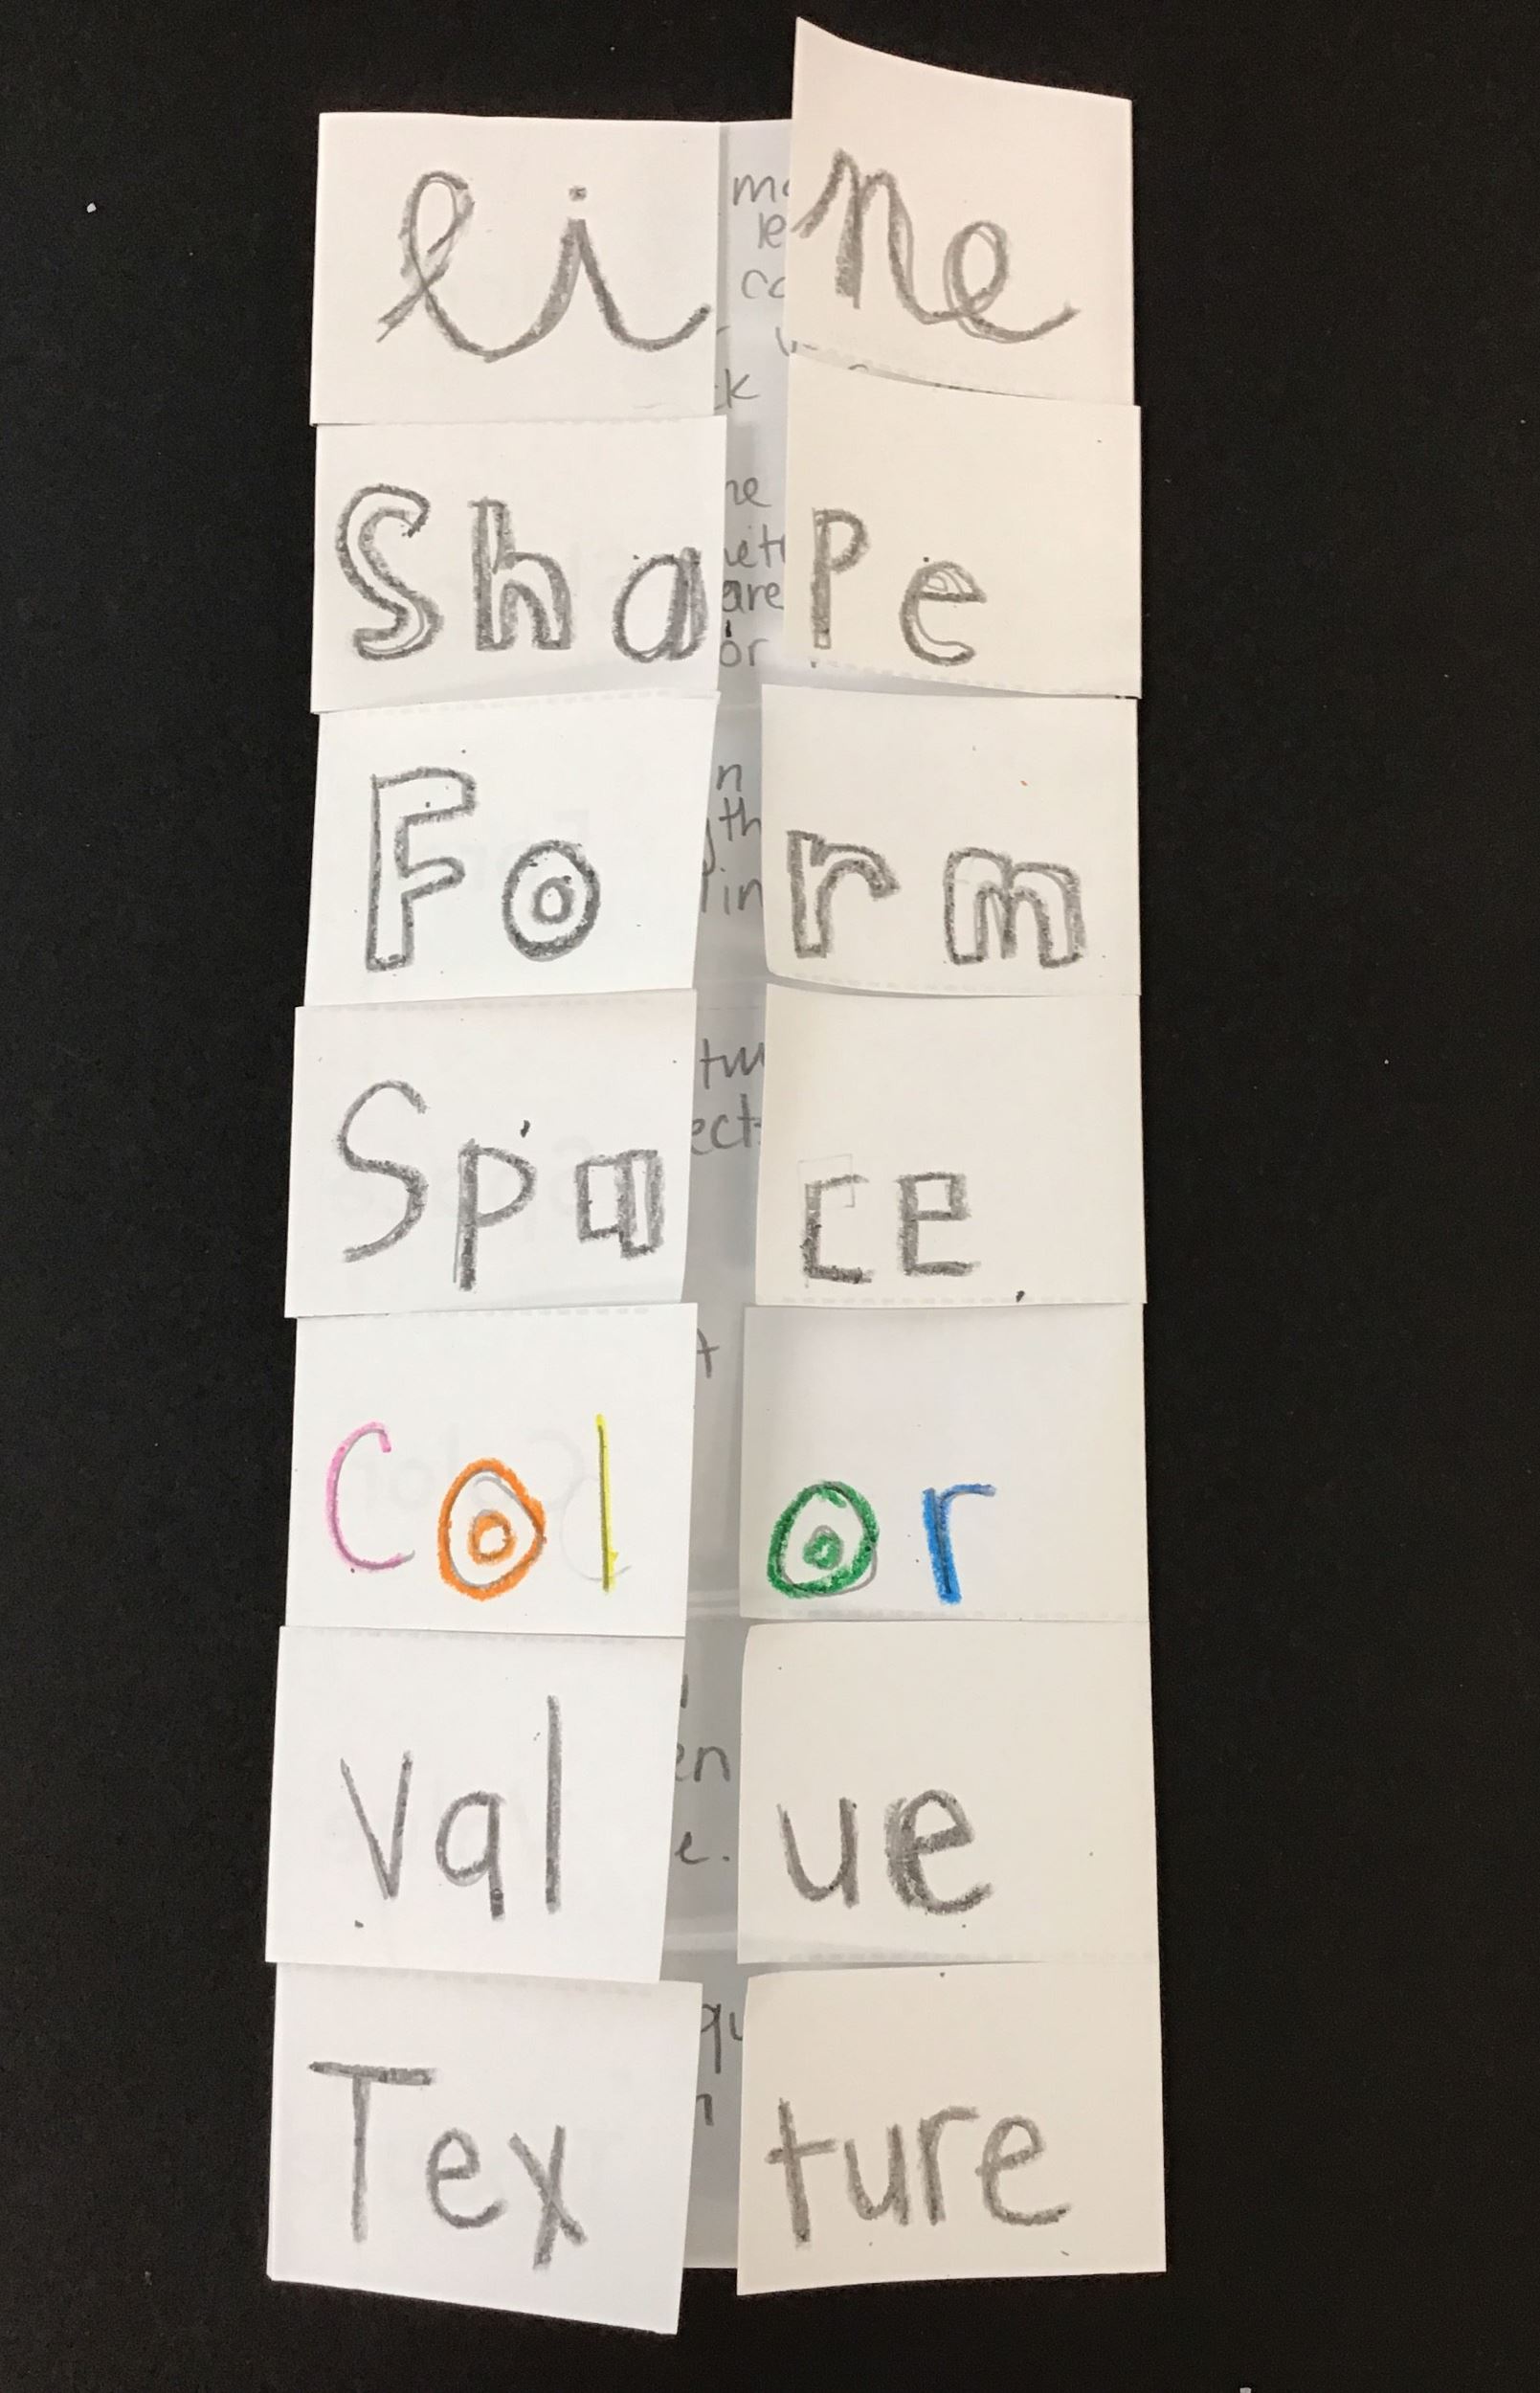 line
Shape
Form
Space
Color
Value
Texture